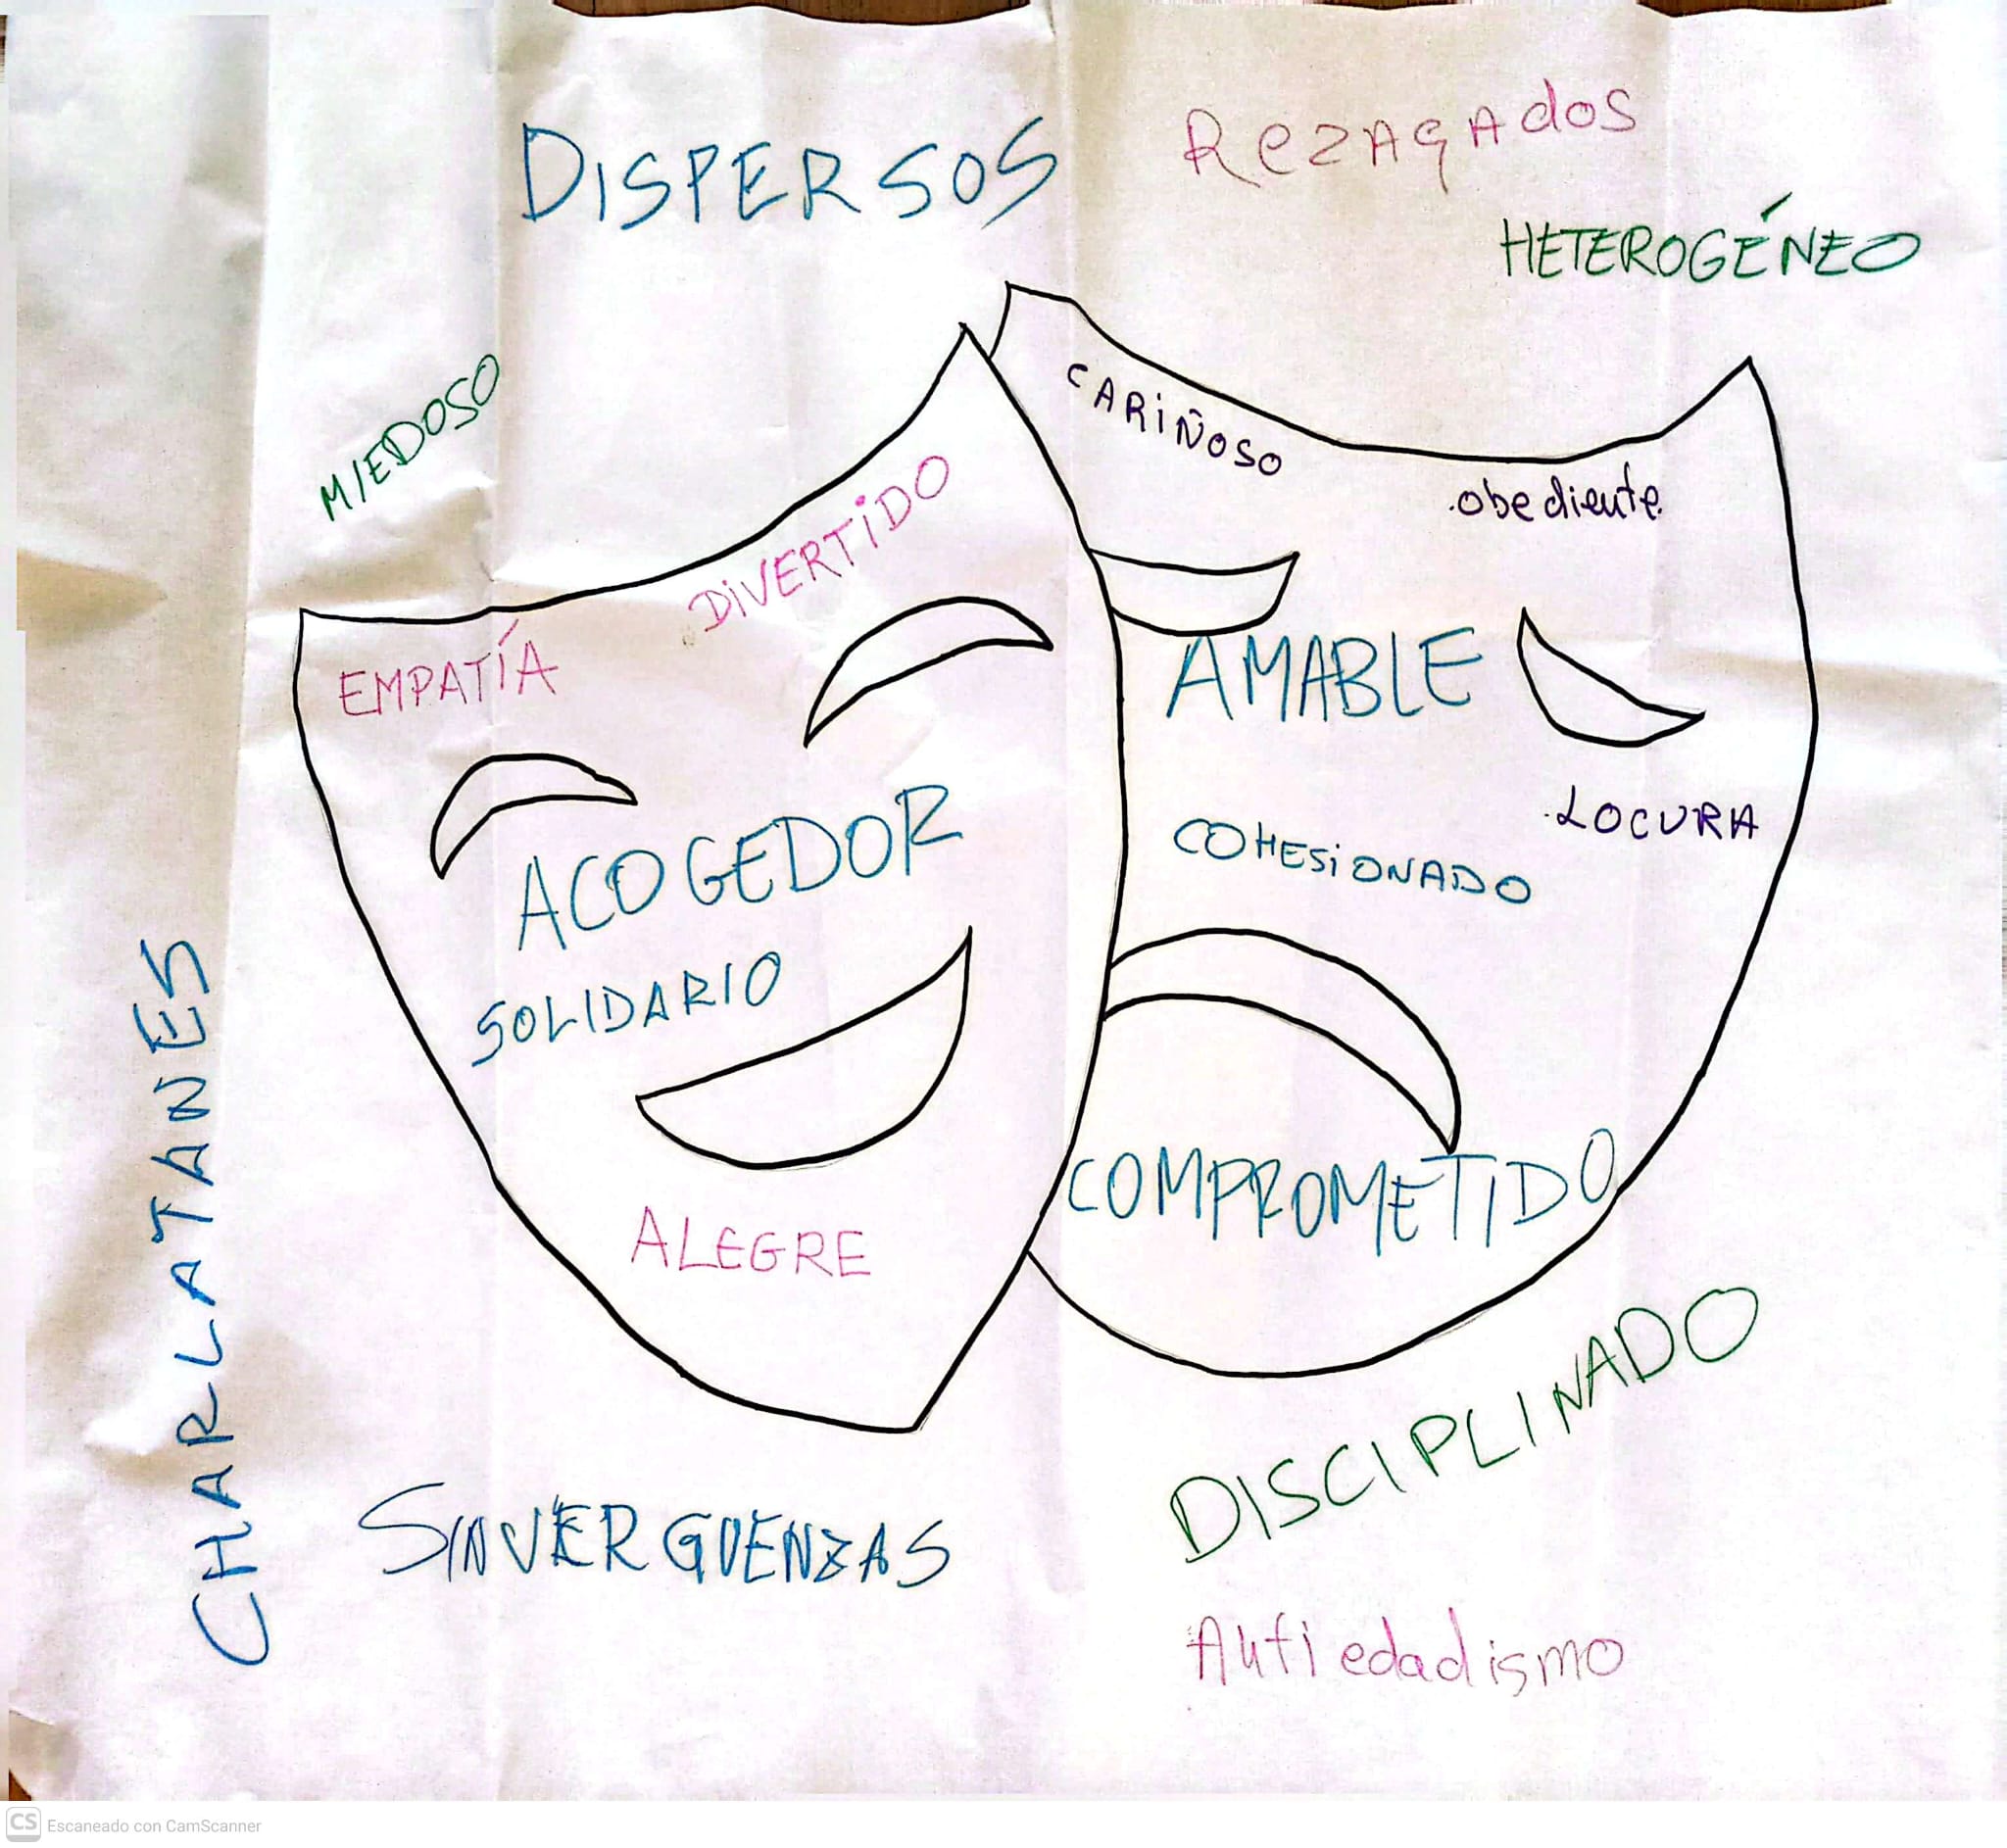 DISPERSOS
Rezagados
HETEROGÉNEO
MIEDOSO
CARIÑOSO
.obediente.
DIVERTIDO
EMPATÍA
AMABLE
.LOCURA
ACOGEDOR
COHESIONADO
SOLIDARIO
COMPROMETIDO
ALEGRE
CHARLATANES
DISCIPLINADO
SINVERGUENZAS
Antiedadismo
CS Escaneado con CamScanner